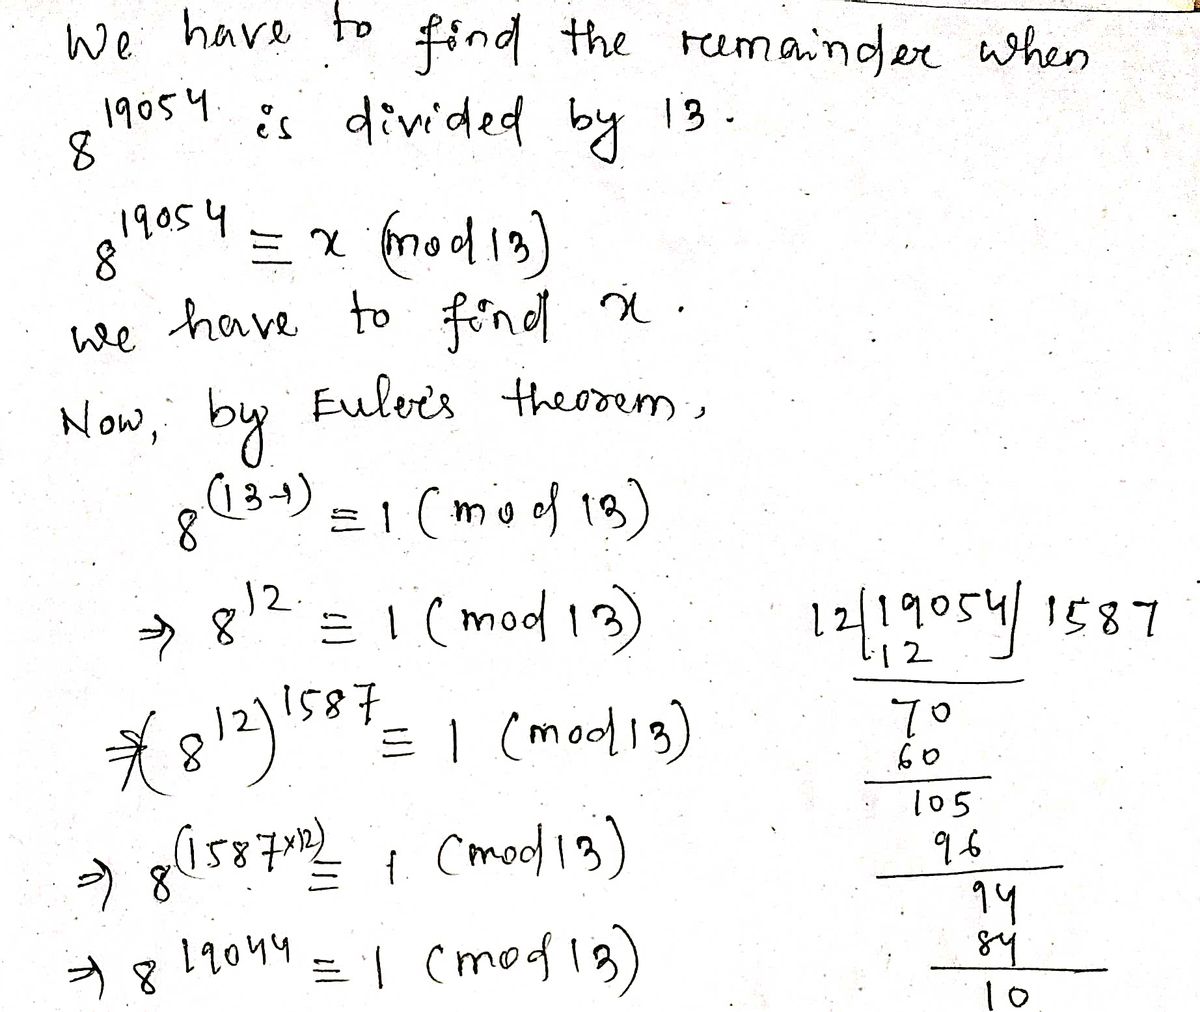 We have to find the remainder when
8^19054 is divided by 13.
8^19054 ≡ x (mod 13)
we have to find x.
Now, by Euler's theorem,
8^(13-1) ≡ 1 (mod 13)
⇒ 8^12 ≡ 1 (mod 13)
⇒ (8^12)^1587 ≡ 1 (mod 13)
⇒ 8^(1587×12) ≡ 1 (mod 13)
⇒ 8^19044 ≡ 1 (mod 13)
12 | 19054 | 1587
12
70
60
105
96
94
84
10